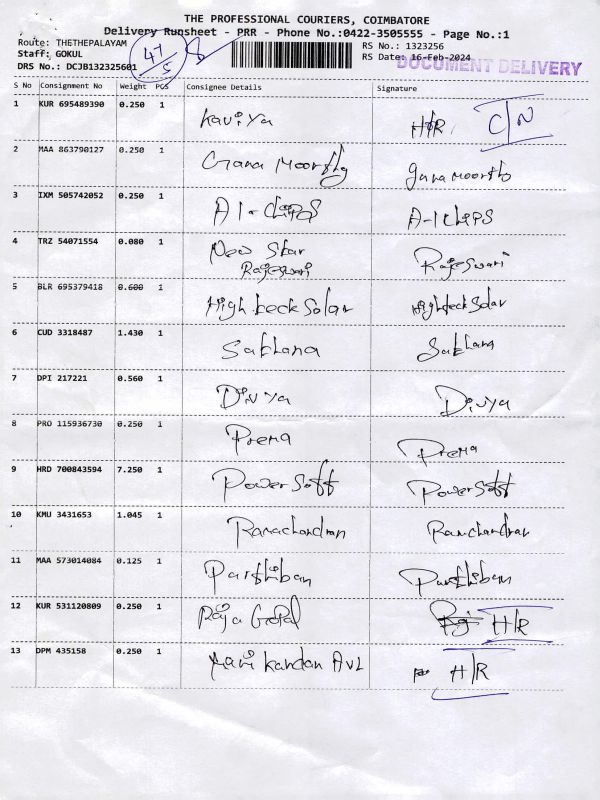 THE PROFESSIONAL COURIERS, COIMBATORE
Delivery Runsheet - PRR - Phone No.:0422-3505555 - Page No.:1
Route: THETHEPALAYAM
Staff: GOKUL
DRS No.: DCJB132325601
47/5
RS No.: 1323256
RS Date: 16-Feb-2024
DOCUMENT DELIVERY
S No Consignment No Weight PCS Consignee Details Signature
1 KUR 695489390 0.250 1 Kaviya H/R C/N
2 MAA 863790127 0.250 1 Gana Moorthy gunamoorthy
3 IXM 505742052 0.250 1 A1-Chips A-1 Chips
4 TRZ 54071554 0.080 1 New Star Rajeswari Rajeswari
5 BLR 695379418 0.600 1 High teck Solar High teck Solar
6 CUD 3318487 1.430 1 Sakhana Sakhana
7 DPI 217221 0.560 1 Divya Divya
8 PRO 115936730 0.250 1 Prema Prema
9 HRD 700843594 7.250 1 Power Soft Power Soft
10 KMU 3431653 1.045 1 Ramachandran Ramchandran
11 MAA 573014084 0.125 1 Parthiban Parthiban
12 KUR 531120809 0.250 1 Raja Gopal H/R
13 DPM 435158 0.250 1 Mani kandan AVL H/R